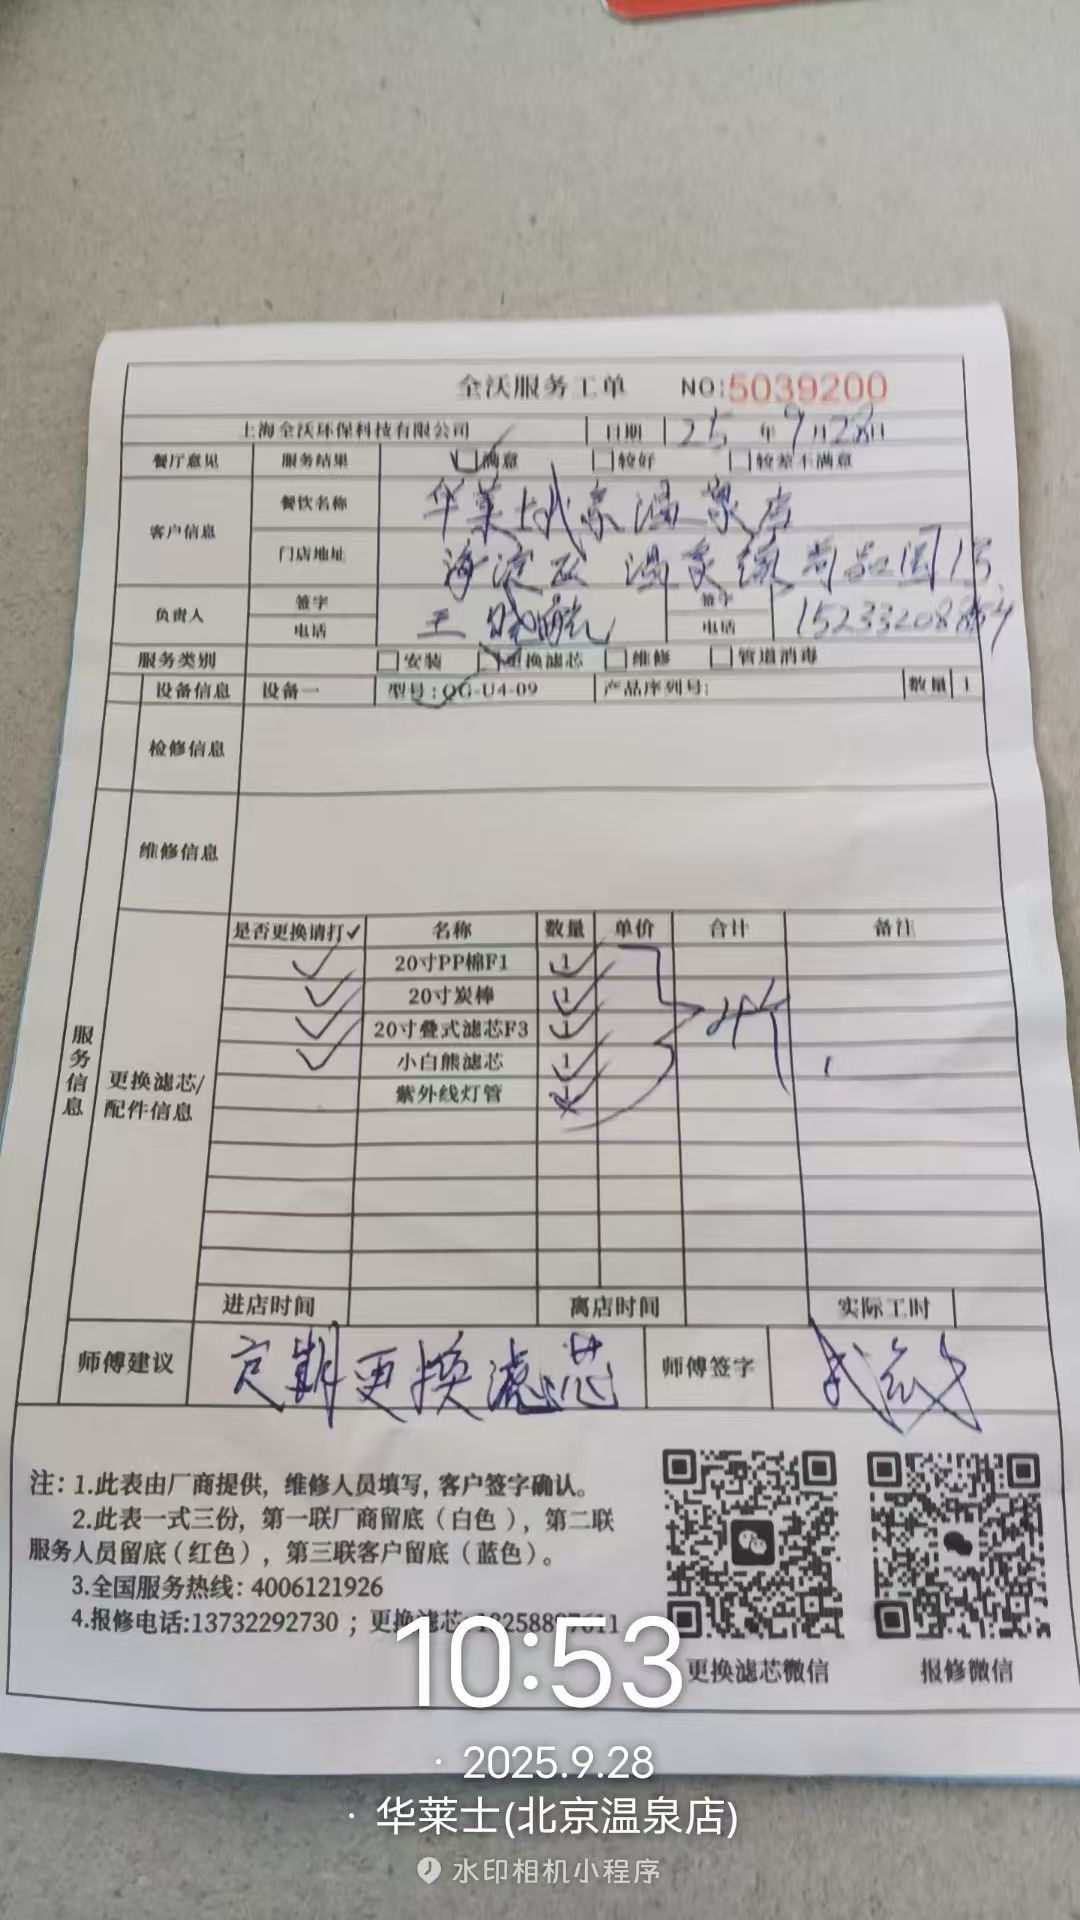 全沃服务工单 NO:5039200
上海全沃环保科技有限公司 日期 25年9月28日
餐厅意见 服务结果 满意 较好 较差不满意
客户信息 餐饮名称 华莱士北京温泉店
门店地址 海淀区温泉镇
负责人 签字 王 签字
电话 电话 152332088
服务类别 安装 更换滤芯 维修 管道消毒
设备信息 设备一 型号:QG-U4-09 产品序列号: 数量 1
检修信息
维修信息
服务信息
更换滤芯/配件信息
是否更换请打✓ 名称 数量 单价 合计 备注
✓ 20寸PP棉F1 1
✓ 20寸炭棒 1
✓ 20寸叠式滤芯F3 1
✓ 小白熊滤芯 1
紫外线灯管 1
4个
进店时间 离店时间 实际工时
师傅建议 定期更换滤芯 师傅签字
注: 1.此表由厂商提供, 维修人员填写, 客户签字确认。
2.此表一式三份, 第一联厂商留底 (白色), 第二联
服务人员留底 (红色), 第三联客户留底 (蓝色)。
3.全国服务热线: 4006121926
4.报修电话:13732292730 ; 更换滤芯:
更换滤芯微信 报修微信
10:53
· 2025.9.28
· 华莱士(北京温泉店)
水印相机小程序